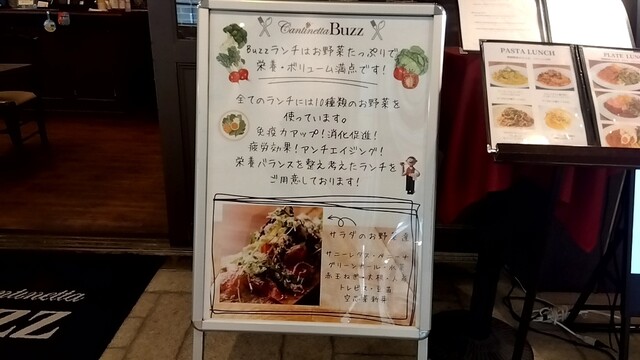 Cantinetta Buzz
Buzzランチはお野菜たっぷりで
栄養・ボリューム満点です!
全てのランチには10種類のお野菜を
使っています。
免疫力アップ!消化促進!
疲労効果!アンチエイジング!
栄養バランスを整え考えたランチを
ご用意しております!
サラダのお野菜
サニーレタス・
グリーンカール・
赤玉ねぎ・大根・
トレビス・豆苗
PASTA LUNCH
PLATE LUNCH
Cantinetta
BUZZ